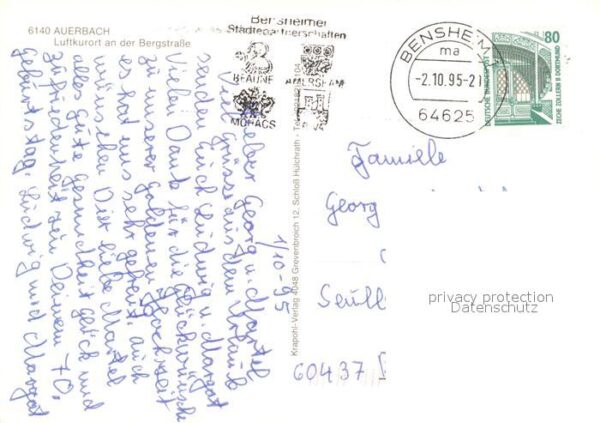 6140 AUERBACH
Luftkurort an der Bergstraße
Bensheimer
Städtepartnerschaften
BEAUNE AMERSHAM
MOHACS
BENSHEIM 1
ma
-2.10.95-2
64625
80
DEUTSCHE BUNDESPOST
ZECHE ZOLLERN II DORTMUND
1/10-95
Lieber Georg u. Martel
Viel Grüsse aus dem Urlaub
senden Euch Ludwig u. Margot
Vielen Dank für die Glückwünsche
zu unserer goldenen Hochzeit
es hat uns sehr gefreut. Auch
wünschen Dir liebe Martel
alles gute Gesundheit Glück und
Zufriedenheit zu Deinem 70.
Geburtstag. Ludwig und Margot
Krapohl-Verlag 4048 Grevenbroich 12, Schloß Hülchrath
Familie
Georg
60437
privacy protection
Datenschutz